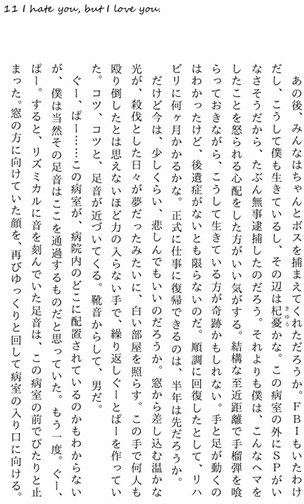 11 I hate you, but I love you.
あの後、みんなはちゃんとボスを捕まえてくれただろうか。FBIもいたわけ
だし、こうして僕も生きているし、その辺は杞憂かな。この病室の外にSPがい
きゆう
なさそうだから、たぶん無事逮捕したのだろう。それよりも僕は、こんなヘマを
したことを怒られる心配をした方がいい気がする。結構な至近距離で手榴弾を喰
らっておきながら、こうして生きている方が奇跡かもしれない。手と足が動くの
はわかったけど、後遺症がないとも限らないのだ。順調に回復したとして、リハ
ビリに何ヶ月かかるかな。正式に仕事に復帰できるのは、半年は先だろうか。
だけど今は、少しくらい、悲しんでもいいのだろうか。窓から差し込む温かな
光が、殺伐とした日々が夢だったみたいに、白い部屋を照らす。この手で何人も
殴り倒したとは思えないほど力の入らない手で、繰り返しぐーとぱーを作ってい
た。コツ、コツと、足音が近づいてくる。靴音からして、男だ。
ぐー、ぱー……この病室が、病院内のどこに配置されているのかもわからない
が、僕は当然その足音はここを通過するものだと思っていた。もう一度。ぐー、
ぱー。すると、リズミカルに音を刻んでいた足音は、この病室の前でぴたりと止
まった。窓の方に向けていた顔を、再びゆっくりと回して病室の入り口に向ける。